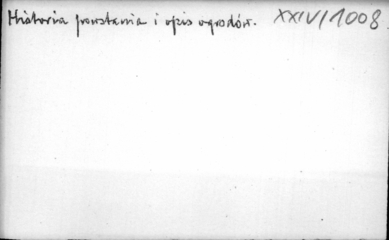 Historia powstania i opis ogrodów. XXIV/1008